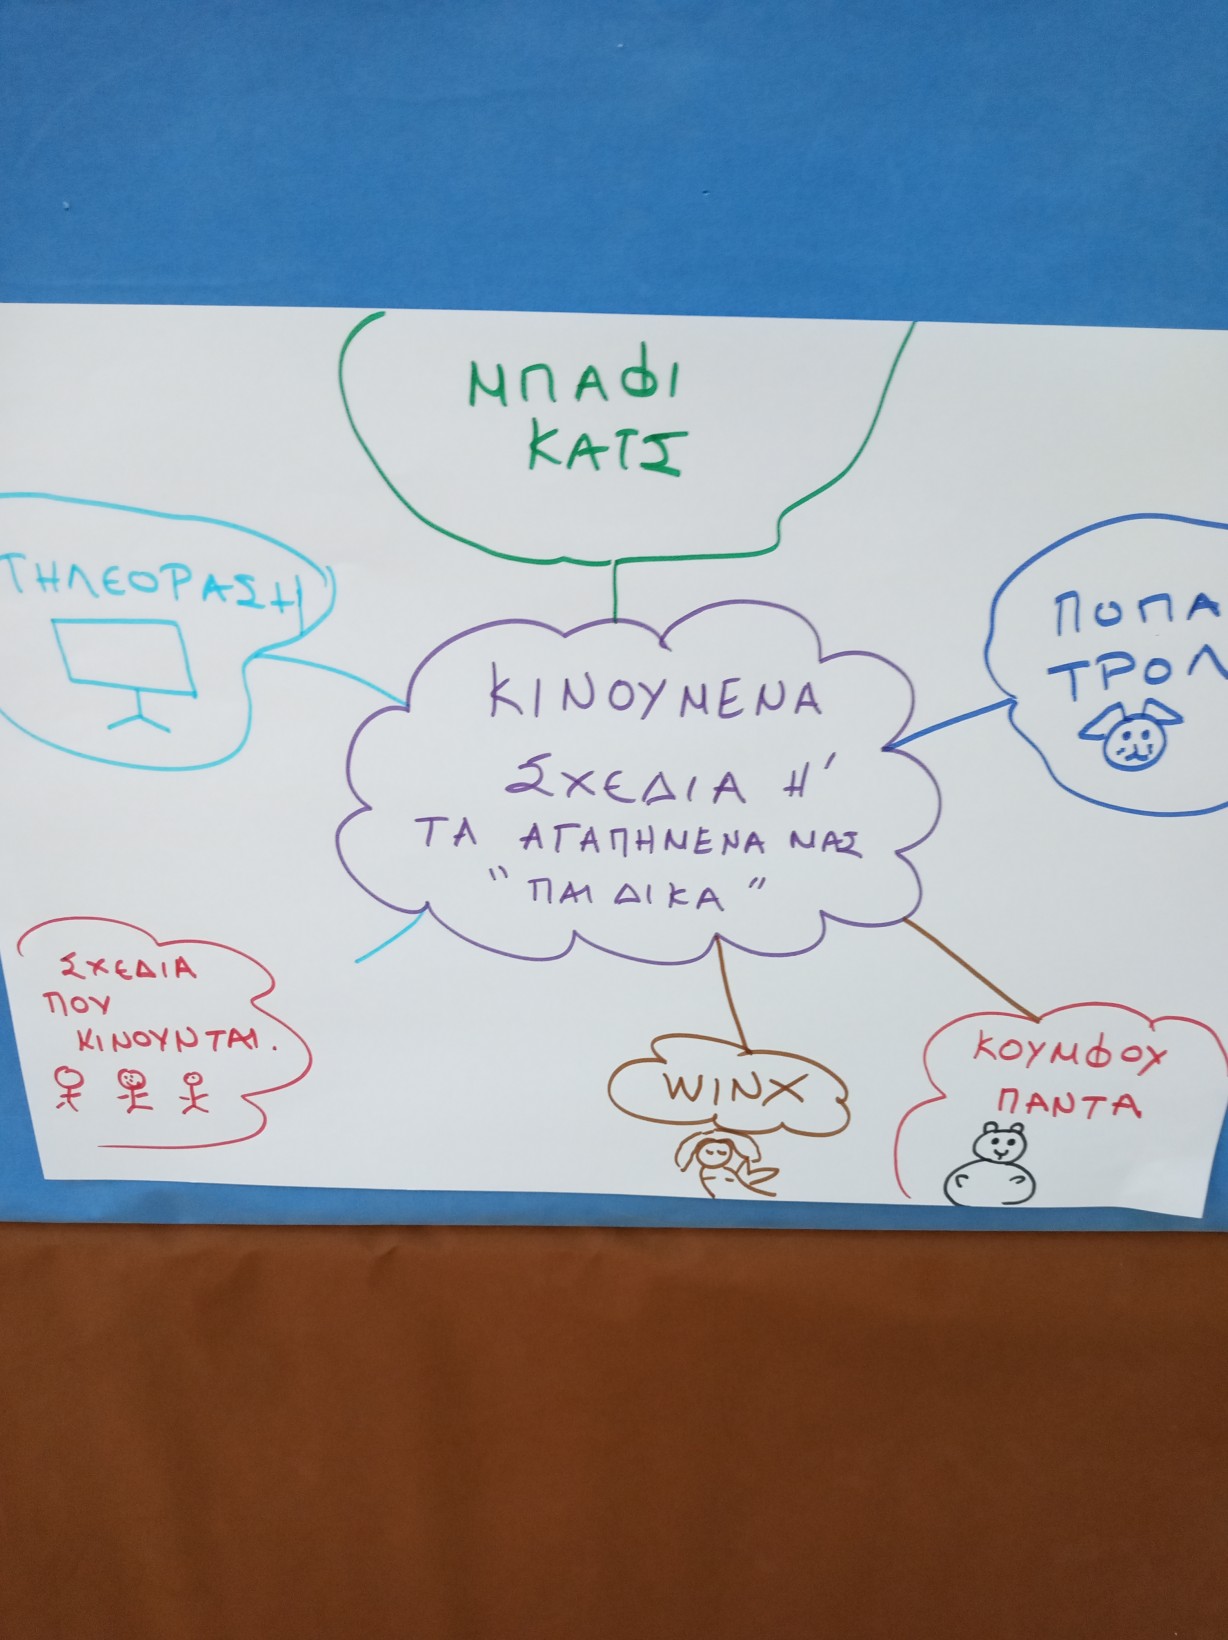 ΜΠΑΦΙ
ΚΑΤΣ
ΤΗΛΕΟΡΑΣΗ
ΠΟΠΑ
ΤΡΟΛ
ΚΙΝΟΥΜΕΝΑ
ΣΧΕΔΙΑ Η'
ΤΑ ΑΓΑΠΗΜΕΝΑ ΜΑΣ
"ΠΑΙΔΙΚΑ"
ΣΧΕΔΙΑ
ΠΟΥ
ΚΙΝΟΥΝΤΑΙ.
WINX
ΚΟΥΜΦΟΥ
ΠΑΝΤΑ